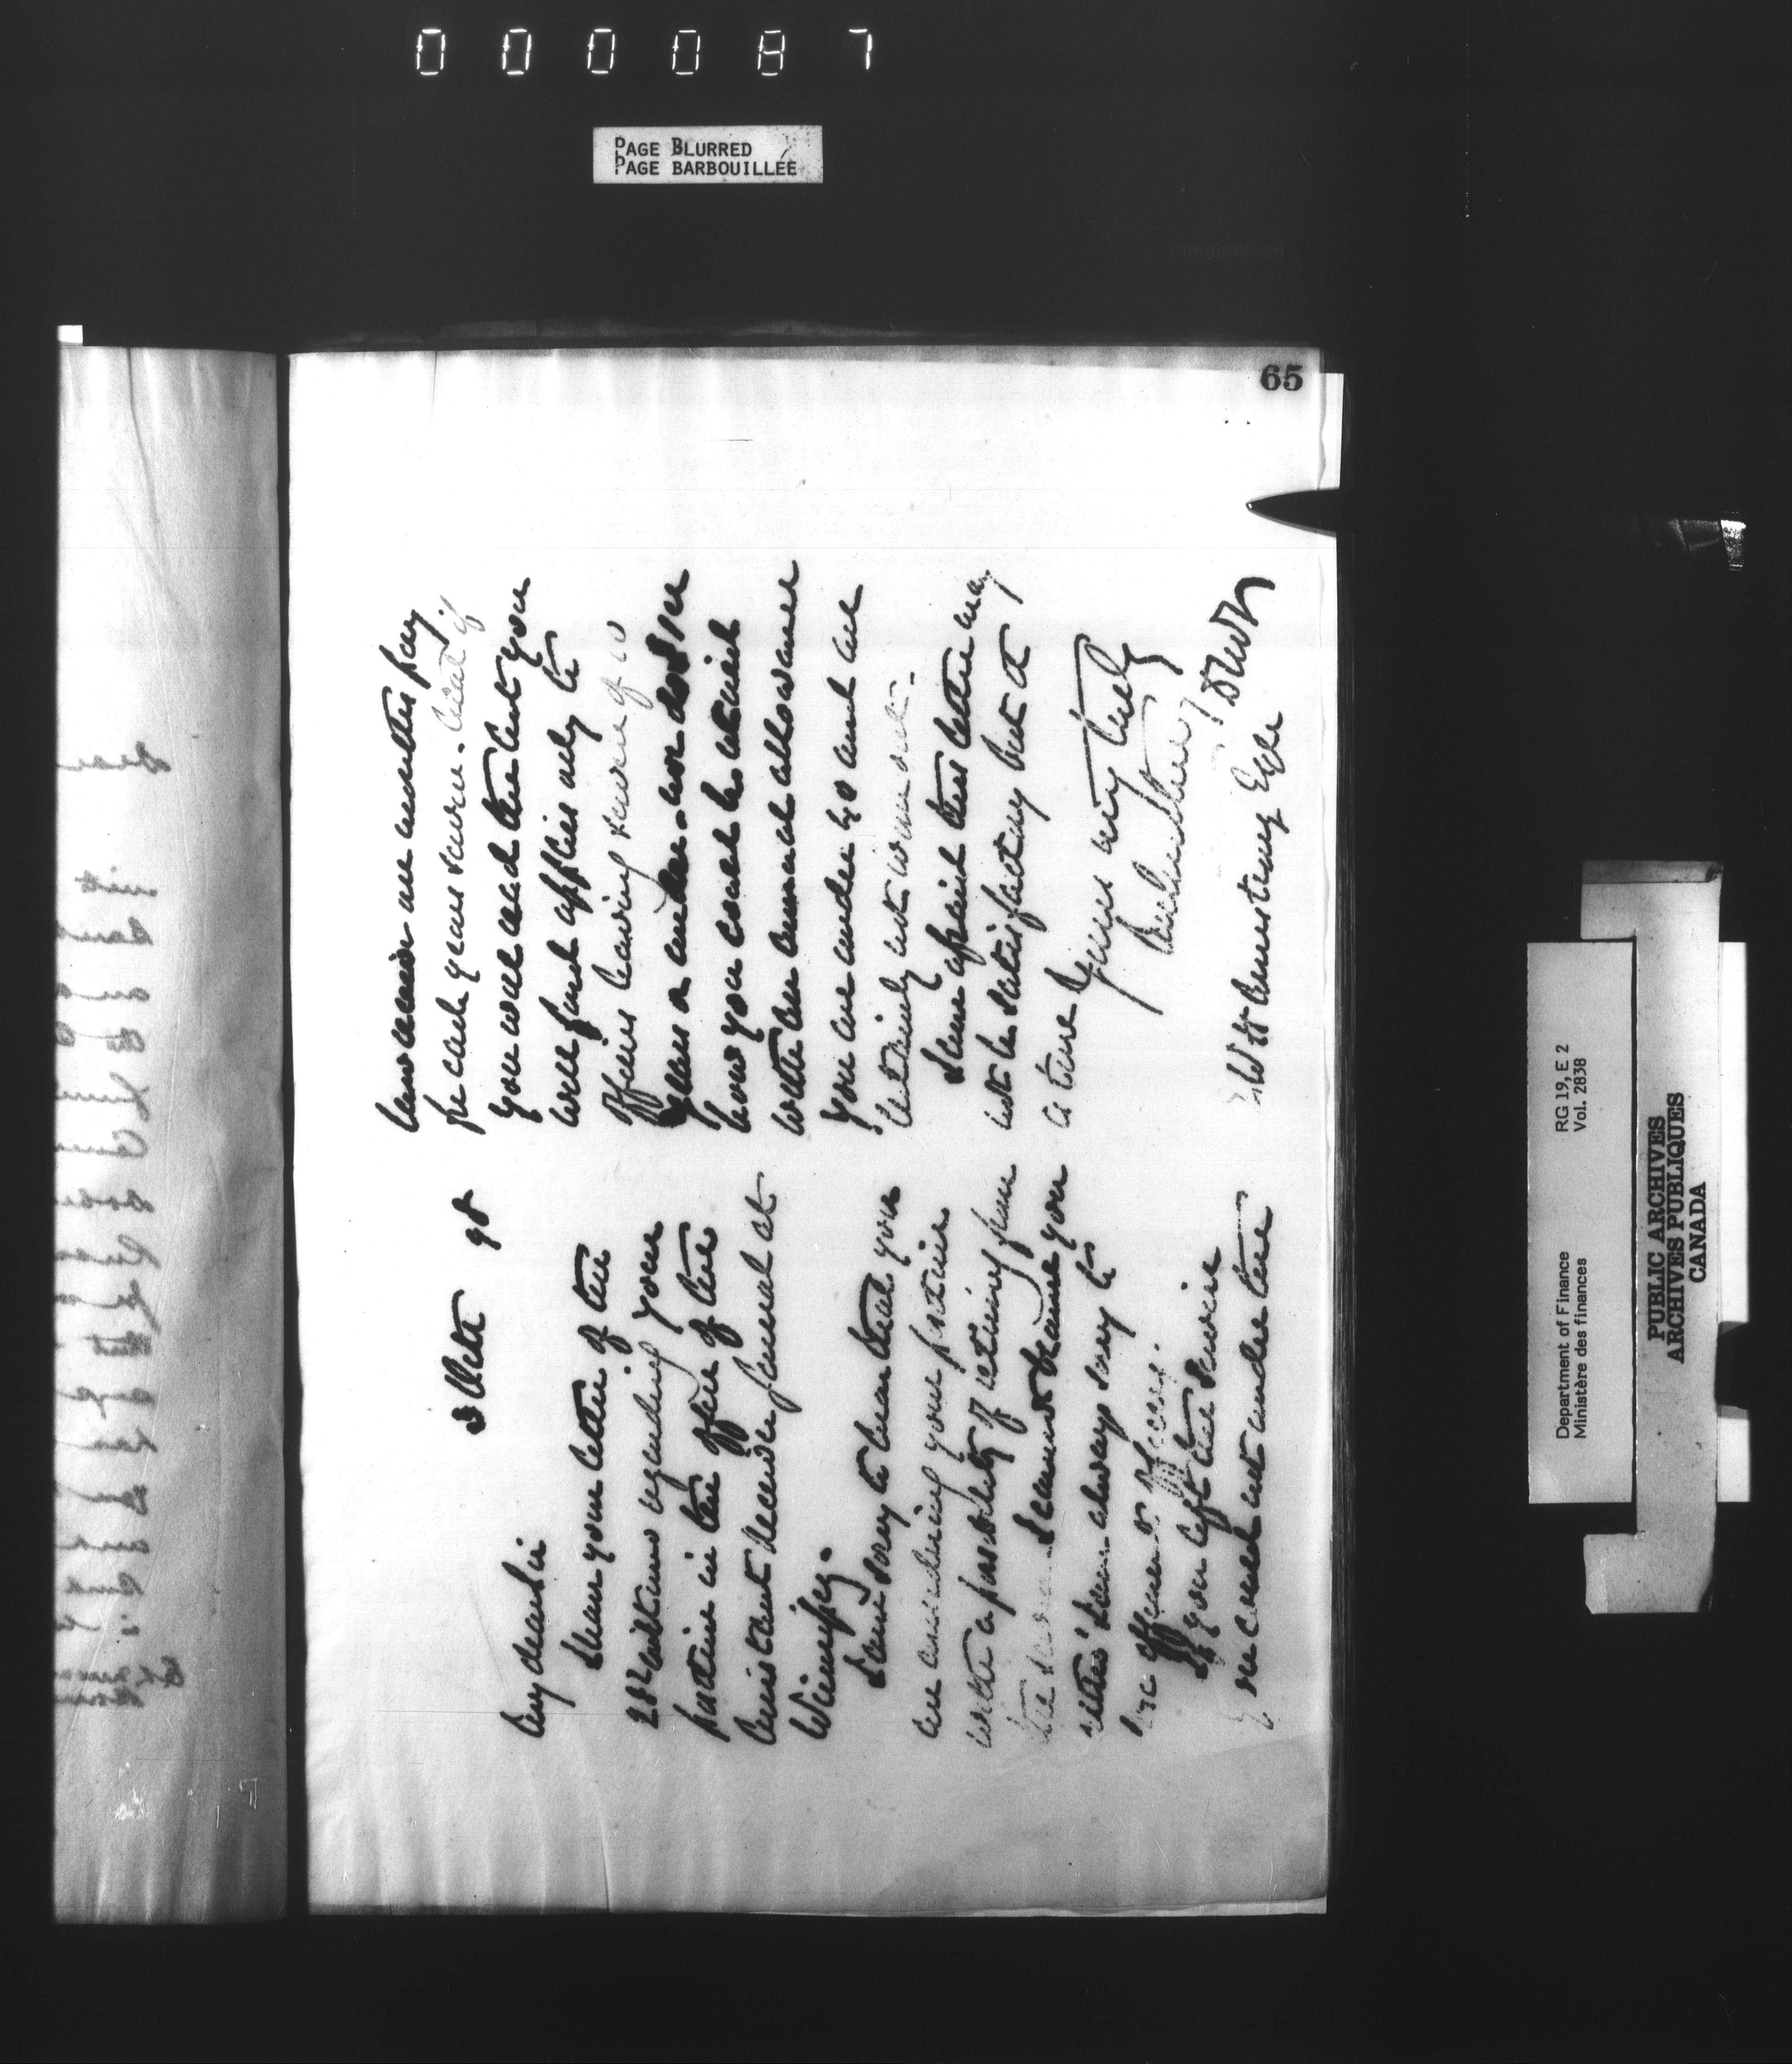 000087
PAGE BLURRED
PAGE BARBOUILLÉE
65
3 Octr 98
My dear Sir
I have your letter of the
28th ultimo regarding your
position in the office of the
Assistant Receiver General at
Winnipeg.
I am sorry to hear that you
are considering your position
with a possibility of retiring from
the service. I cannot blame you
altho' I am always sorry to
lose efficient officers.
If you left the service
you could not under the
law receive one months pay
for each years service. Read if
you will read the act you
will find applies only to
officers having service of 10
years or under nor do I see
how you could be retired
with an annual allowance
you are under 60 and are
certainly not worn out.
I am afraid this letter may
not be satisfactory but it
is true
Yours very truly
W H Armstrong Esqr
Department of Finance
Ministère des finances
RG 19, E 2
Vol. 2838
PUBLIC ARCHIVES
ARCHIVES PUBLIQUES
CANADA